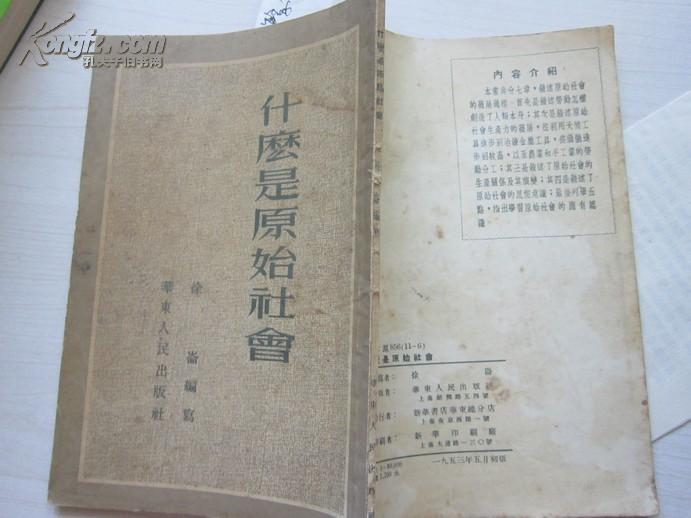 Kongfz.com
孔夫子旧书网
什麽是原始社會
徐崙編寫
華東人民出版社
內容介紹
本書共分七章，敍述原始社會
的發展過程。首先是敍述勞動怎樣
創造了人類本身；其次是敍述原始
社會生產力的發展，從利用天然工
具進步到冶鍊金屬工具，從採集進
步到牧畜，以至農業和手工業的勞
動分工；其三是敍述了原始社會的
生產關係及其演變；其四是敍述了
原始社會的思想意識；最後列舉五
點，指出學習原始社會的應有認
識。
856(11-6)
是原始社會
者：徐崙
者：華東人民出版社
上海紹興路五四號
行者：新華書店華東總分店
上海南京西路一號
者：新華印刷廠
上海大連路一三〇號
一九五三年五月初版